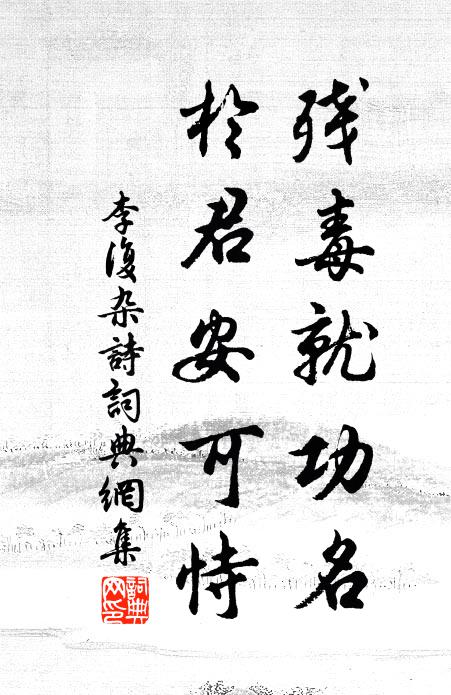 残毒就功名
於君安可恃
李復杂詩詞典網集
詞典
网印